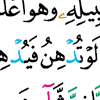 سَبِيلِهِۦ وَهُوَ أَعْلَ
لَوْ تُدْهِنُ فَيُدْهِنُ